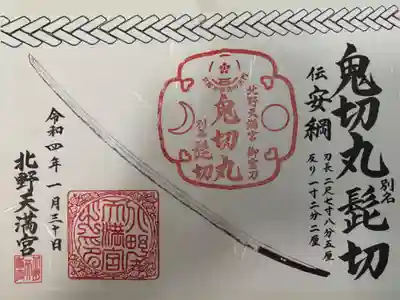 鬼切丸 別名 髭切
伝 安綱
刀長 二尺七寸八分五厘
反り 一寸二分二厘
北野天満宮 御宝刀
鬼切丸
別名 髭切
令和四年 一月三十日
北野天満宮